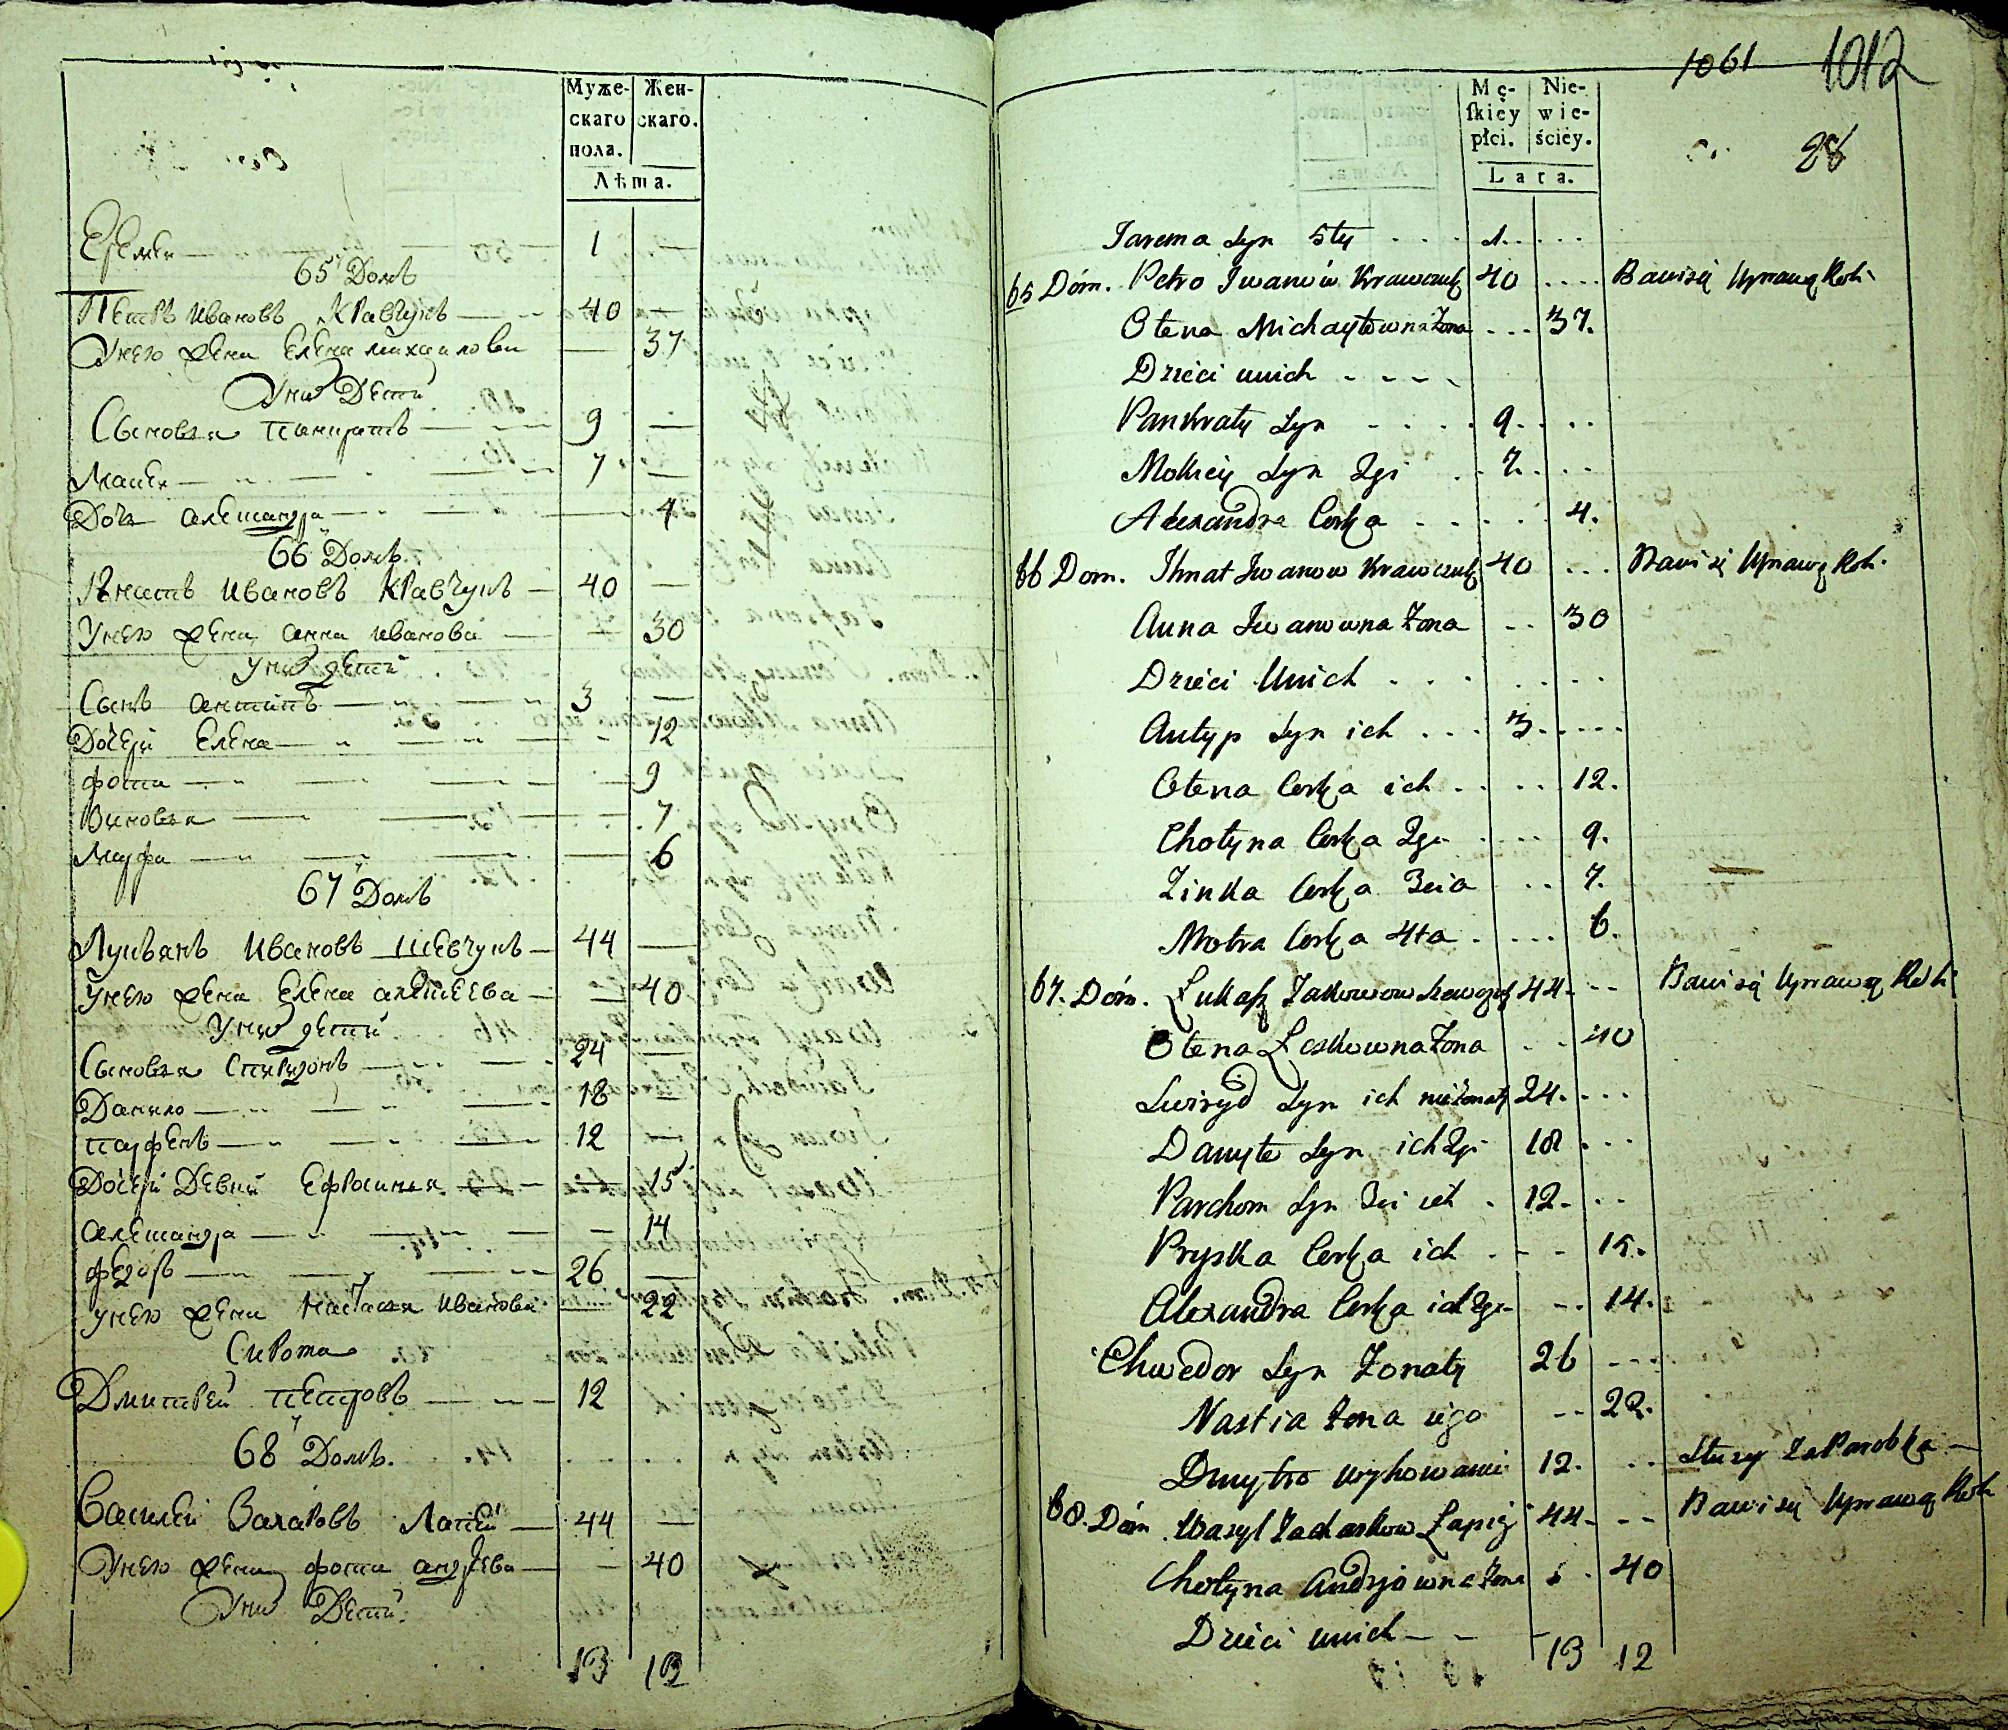 Муже-
скаго
пола.
Жен-
скаго.
Лѣта.
Еремеи 1
65 Домъ
Петръ Ивановъ Кравчукъ 40
У него жена Елена Михаилова 37
У них Дети
Сыновья Панкратъ 9
Макеи 7
Дочь Александра 4
66 Домъ
Игнатъ Ивановъ Кравчукъ 40
У него жена Анна Иванова 30
У них дети
Сынъ Антипъ 3
Дочери Елена 12
Фотина 9
Зиновья 7
Марфа 6
67 Домъ
Лукьянъ Ивановъ Шевчукъ 44
У него жена Елена Алексеева 40
У них дети
Сыновья Спиридонъ 24
Данило 18
Парфенъ 12
Дочери Девки Ефросинья 15
Александра 14
Федоръ 26
У него жена Настасья Иванова 22
Сирота
Дмитреи Петровъ 12
68 Домъ.
Василеи Захаровъ Лапеи 44
У него жена Фотина Андреева 40
У них Дети.
13 12
1061 1012
28
Mę-
skiéy
płci.
Nie-
wie-
ściéy.
Lata.
Jarema Syn 5ty 1
65 Dóm. Petro Iwanów Krawczuk 40 Bawi się Uprawą Roli
Olena Michayłowna Żona 37.
Dzieci u nich
Pankraty Syn 9.
Mokiéy Syn 2gi 7.
Alexandra Corka 4.
66 Dom. Ihnat Iwanow Krawczuk 40 Bawi się Uprawą Roli.
Anna Iwanowna Żona 30
Dzieci U nich
Antyp Syn ich 3.
Olena Corka ich 12.
Chotyna Corka 2ga 9.
Zinka Corka 3cia 7.
Motra Corka 4ta 6.
67. Dóm. Łukasz Jakowow Szewczuk 44. Bawi się Uprawą Roli
Olena Leskowna Żona 40
Swiryd Syn ich nieżonaty 24.
Danyło Syn ich 2gi 18
Parchom Syn 3ci ich 12.
Pryska Corka ich 15.
Alexandra Corka ich 2ga 14.
Chwedor Syn Żonaty 26
Nastia Żona iego 22.
Dmytro wychowanie 12. Służy za Parobka
68. Dóm Wasyl Zacharkow Łapiéj 44. Bawi się Uprawą Roli
Chotyna Andryjowna Żona 40
Dzieci u nich
13 12